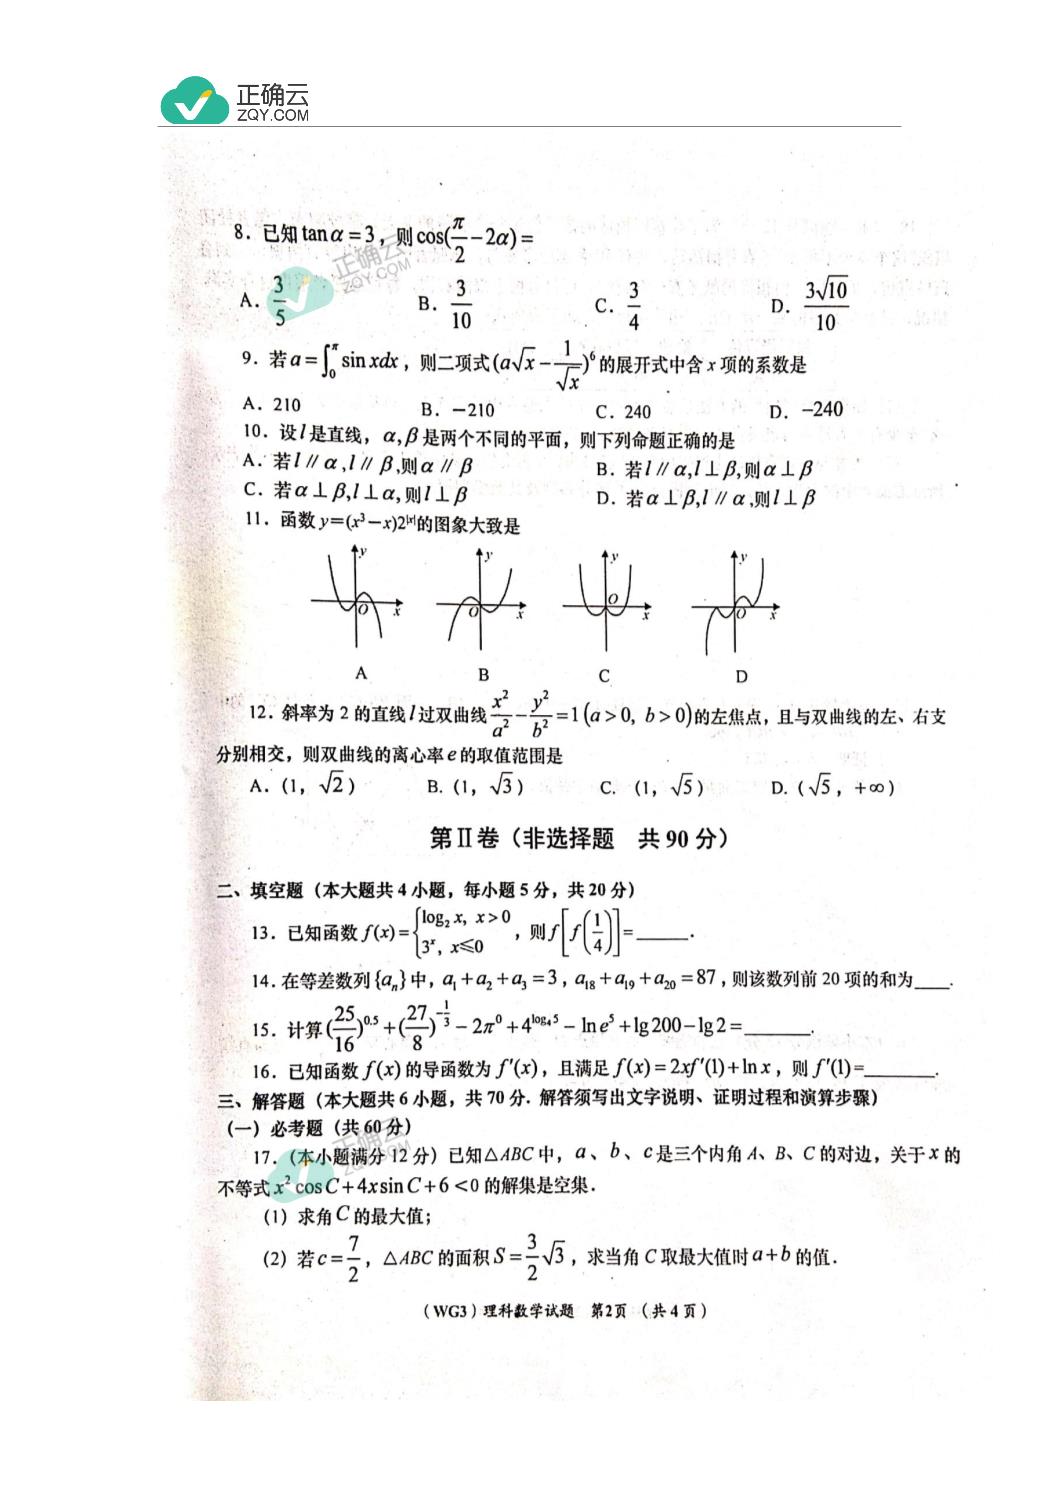 正确云
ZQY.COM
8．已知 tanα=3，则cos(π/2−2α)=
正确云
ZQY.COM
A．3/5 B．3/10 C．3/4 D．3√10/10
9．若a=∫₀^π sin xdx，则二项式(a√x−1/√x)⁶的展开式中含 x 项的系数是
A．210 B．−210 C．240 D．−240
10．设l是直线，α,β是两个不同的平面，则下列命题正确的是
A．若l∥α,l∥β,则α∥β B．若l∥α,l⊥β,则α⊥β
C．若α⊥β,l⊥α,则l⊥β D．若α⊥β,l∥α,则l⊥β
11．函数 y=(x³−x)2^|x|的图象大致是
y y y y
O x O x O x O x
A B C D
12．斜率为 2 的直线l过双曲线x²/a²−y²/b²=1(a>0, b>0)的左焦点，且与双曲线的左、右支
分别相交，则双曲线的离心率e的取值范围是
A．(1，√2) B.（1，√3） C.（1，√5） D.（√5，+∞）
第Ⅱ卷（非选择题 共 90 分）
二、填空题（本大题共 4 小题，每小题 5 分，共 20 分）
13．已知函数 f(x)={log₂x, x>0
3ˣ, x≤0，则f[f(1/4)]=_____.
14．在等差数列{aₙ}中，a₁+a₂+a₃=3，a₁₈+a₁₉+a₂₀=87，则该数列前 20 项的和为____.
15．计算(25/16)^0.5+(27/8)^(−1/3)−2π⁰+4^(log₄5)−lne⁵+lg200−lg2=_______.
16．已知函数 f(x) 的导函数为 f′(x)，且满足 f(x)=2xf′(1)+ln x，则 f′(1)=_______.
三、解答题（本大题共 6 小题，共 70 分．解答须写出文字说明、证明过程和演算步骤）
（一）必考题（共 60 分）
正确云
ZQY.COM
17．（本小题满分 12 分）已知△ABC 中，a、b、c是三个内角 A、B、C 的对边，关于 x 的
不等式 x²cosC+4xsinC+6<0 的解集是空集．
(1) 求角C的最大值；
(2) 若c=7/2，△ABC 的面积S=3/2√3，求当角 C 取最大值时a+b的值．
（WG3）理科数学试题 第2页（共 4 页）